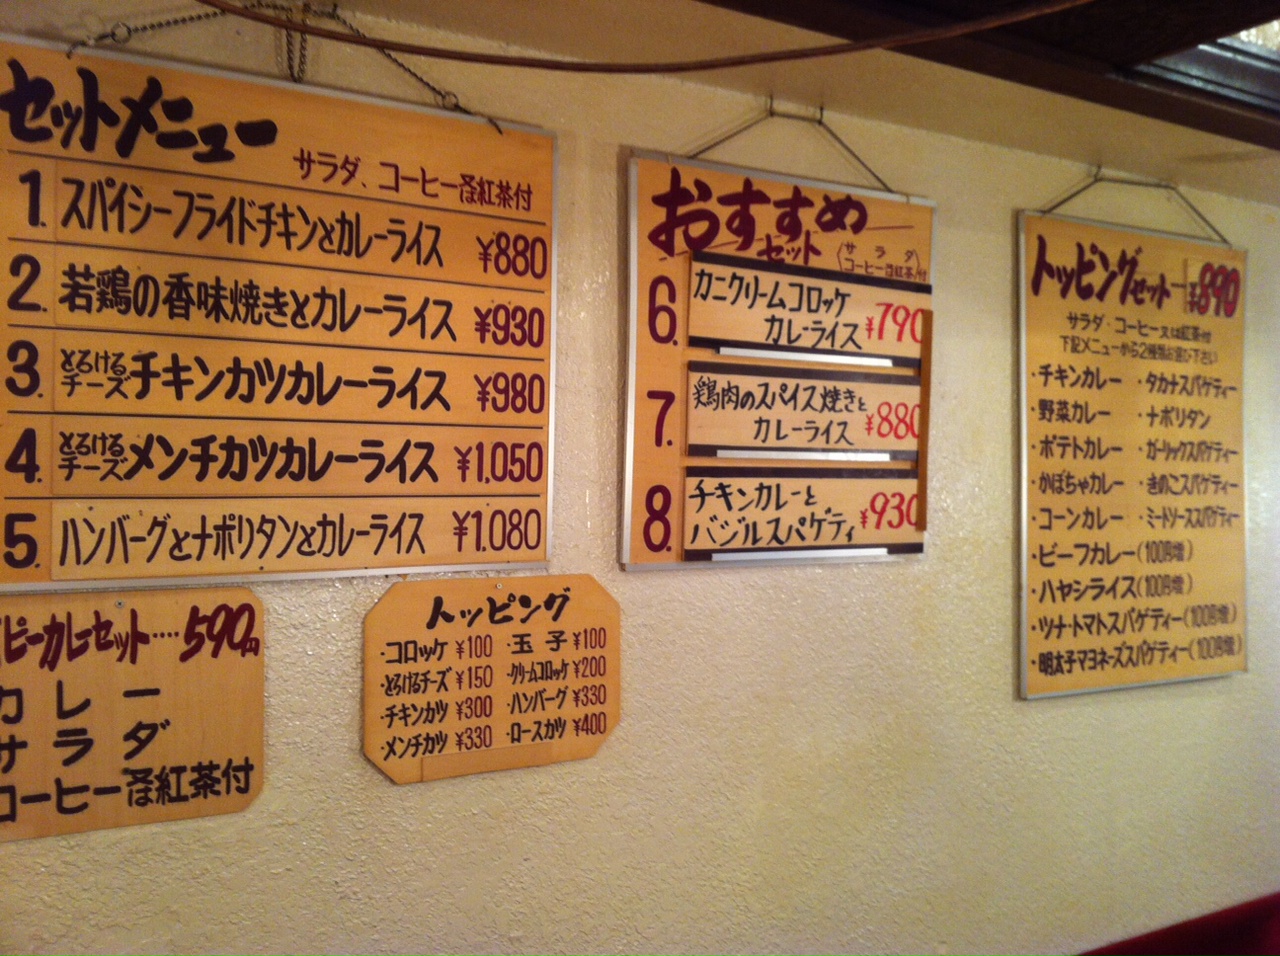 セットメニュー
サラダ、コーヒー又は紅茶付
1. スパイシーフライドチキンとカレーライス ¥880
2. 若鶏の香味焼きとカレーライス ¥930
3. とろけるチーズチキンカツカレーライス ¥980
4. とろけるチーズメンチカツカレーライス ¥1.050
5. ハンバーグとナポリタンとカレーライス ¥1.080
ピーカレーセット····590円
カレー
サラダ
コーヒー又は紅茶付
トッピング
·コロッケ ¥100 ·玉子 ¥100
·とろけるチーズ ¥150 ·クリームコロッケ ¥200
·チキンカツ ¥300 ·ハンバーグ ¥330
·メンチカツ ¥330 ·ロースカツ ¥400
おすすめ
セット
サラダ
コーヒー又は紅茶付
6. カニクリームコロッケ
カレーライス ¥790
7. 鶏肉のスパイス焼きと
カレーライス ¥880
8. チキンカレーと
バジルスパゲティ ¥930
トッピングセット ¥890
サラダ·コーヒー又は紅茶付
下記メニューから2種類お選び下さい
·チキンカレー ·タカナスパゲティー
·野菜カレー ·ナポリタン
·ポテトカレー ·ガーリックスパゲティー
·かぼちゃカレー ·きのこスパゲティー
·コーンカレー ·ミートソーススパゲティー
·ビーフカレー(100円増)
·ハヤシライス(100円増)
·ツナ·トマトスパゲティー(100円増)
·明太子マヨネーズスパゲティー(100円増)